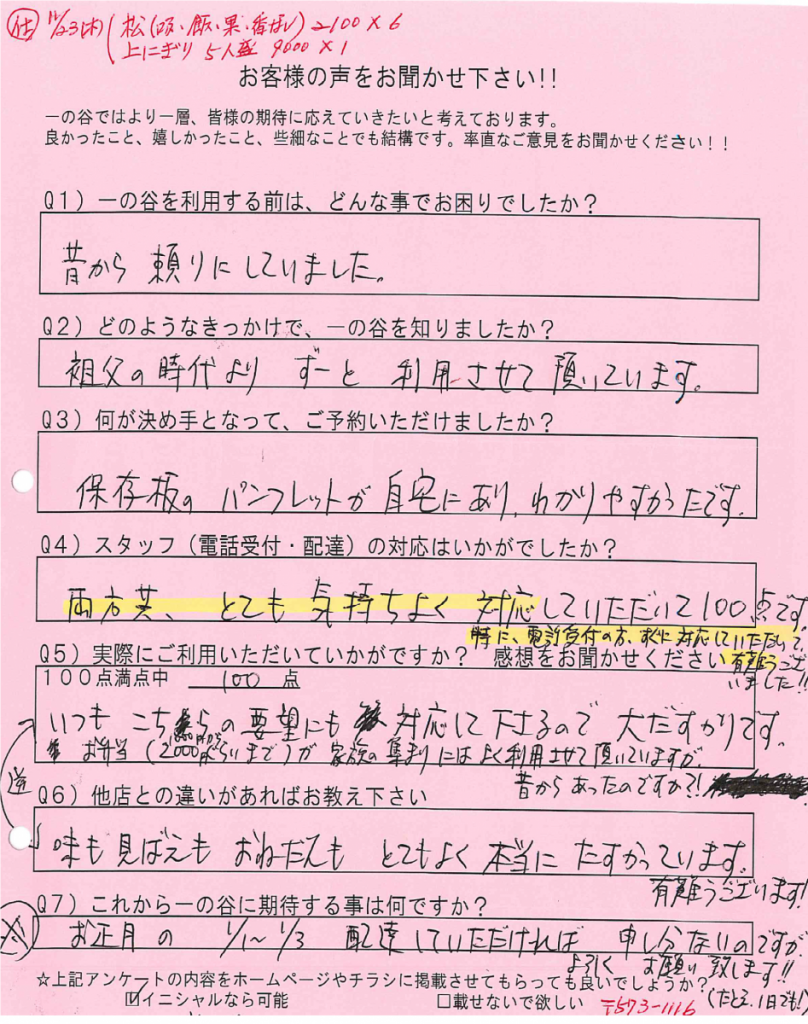 仕 11/23(木) 松(吸・飯・果・香ばし) 2100×6
上にぎり 5人盛 9000×1
お客様の声をお聞かせ下さい!!
一の谷ではより一層、皆様の期待に応えていきたいと考えております。
良かったこと、嬉しかったこと、些細なことでも結構です。率直なご意見をお聞かせください！！
Q1）一の谷を利用する前は、どんな事でお困りでしたか？
昔から 頼りにしていました。
Q2）どのようなきっかけで、一の谷を知りましたか？
祖父の時代より ずーと 利用させて頂いています。
Q3）何が決め手となって、ご予約いただけましたか？
保存板の パンフレットが 自宅にあり、わかりやすかったです。
Q4）スタッフ（電話受付・配達）の対応はいかがでしたか？
両方共、とても 気持ちよく 対応していただいて100点です。
特に、電話受付の方、すぐに対応していただいて、
有難うござ
いました!!
Q5）実際にご利用いただいていかがですか？ 感想をお聞かせください
１００点満点中 100 点
いつも こちらの要望にも 対応して下さるので 大だすかりです。
お弁当（2000円くらいまで）が 家族の集まりには よく利用させて頂いていますが、
昔からあったのですか?!
逆
Q6）他店との違いがあればお教え下さい
味も 見ばえも おねだんも とてもよく 本当に たすかっています。
有難うございます!
Q7）これから一の谷に期待する事は何ですか？
お正月の 1/1～1/3 配達していただければ 申し分ないのですが、
よろしく お願い致します!!
(たとえ、1日でも!)
☆上記アンケートの内容をホームページやチラシに掲載させてもらっても良いでしょうか？
☑イニシャルなら可能 □載せないで欲しい 〒573-1116